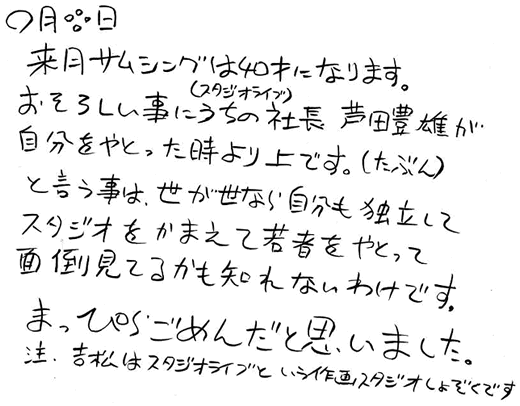 〇月※日
来月サムシングは40才になります。
(スタジオライブ)
おそろしい事にうちの社長 芦田豊雄が
自分をやとった時より上です。(たぶん)
と言う事は、世が世なら自分も独立して
スタジオをかまえて若者をやとって
面倒見てるかも知れないわけです。
まっぴらごめんだと思いました。
注. 吉松はスタジオライブという作画スタジオしょぞくです